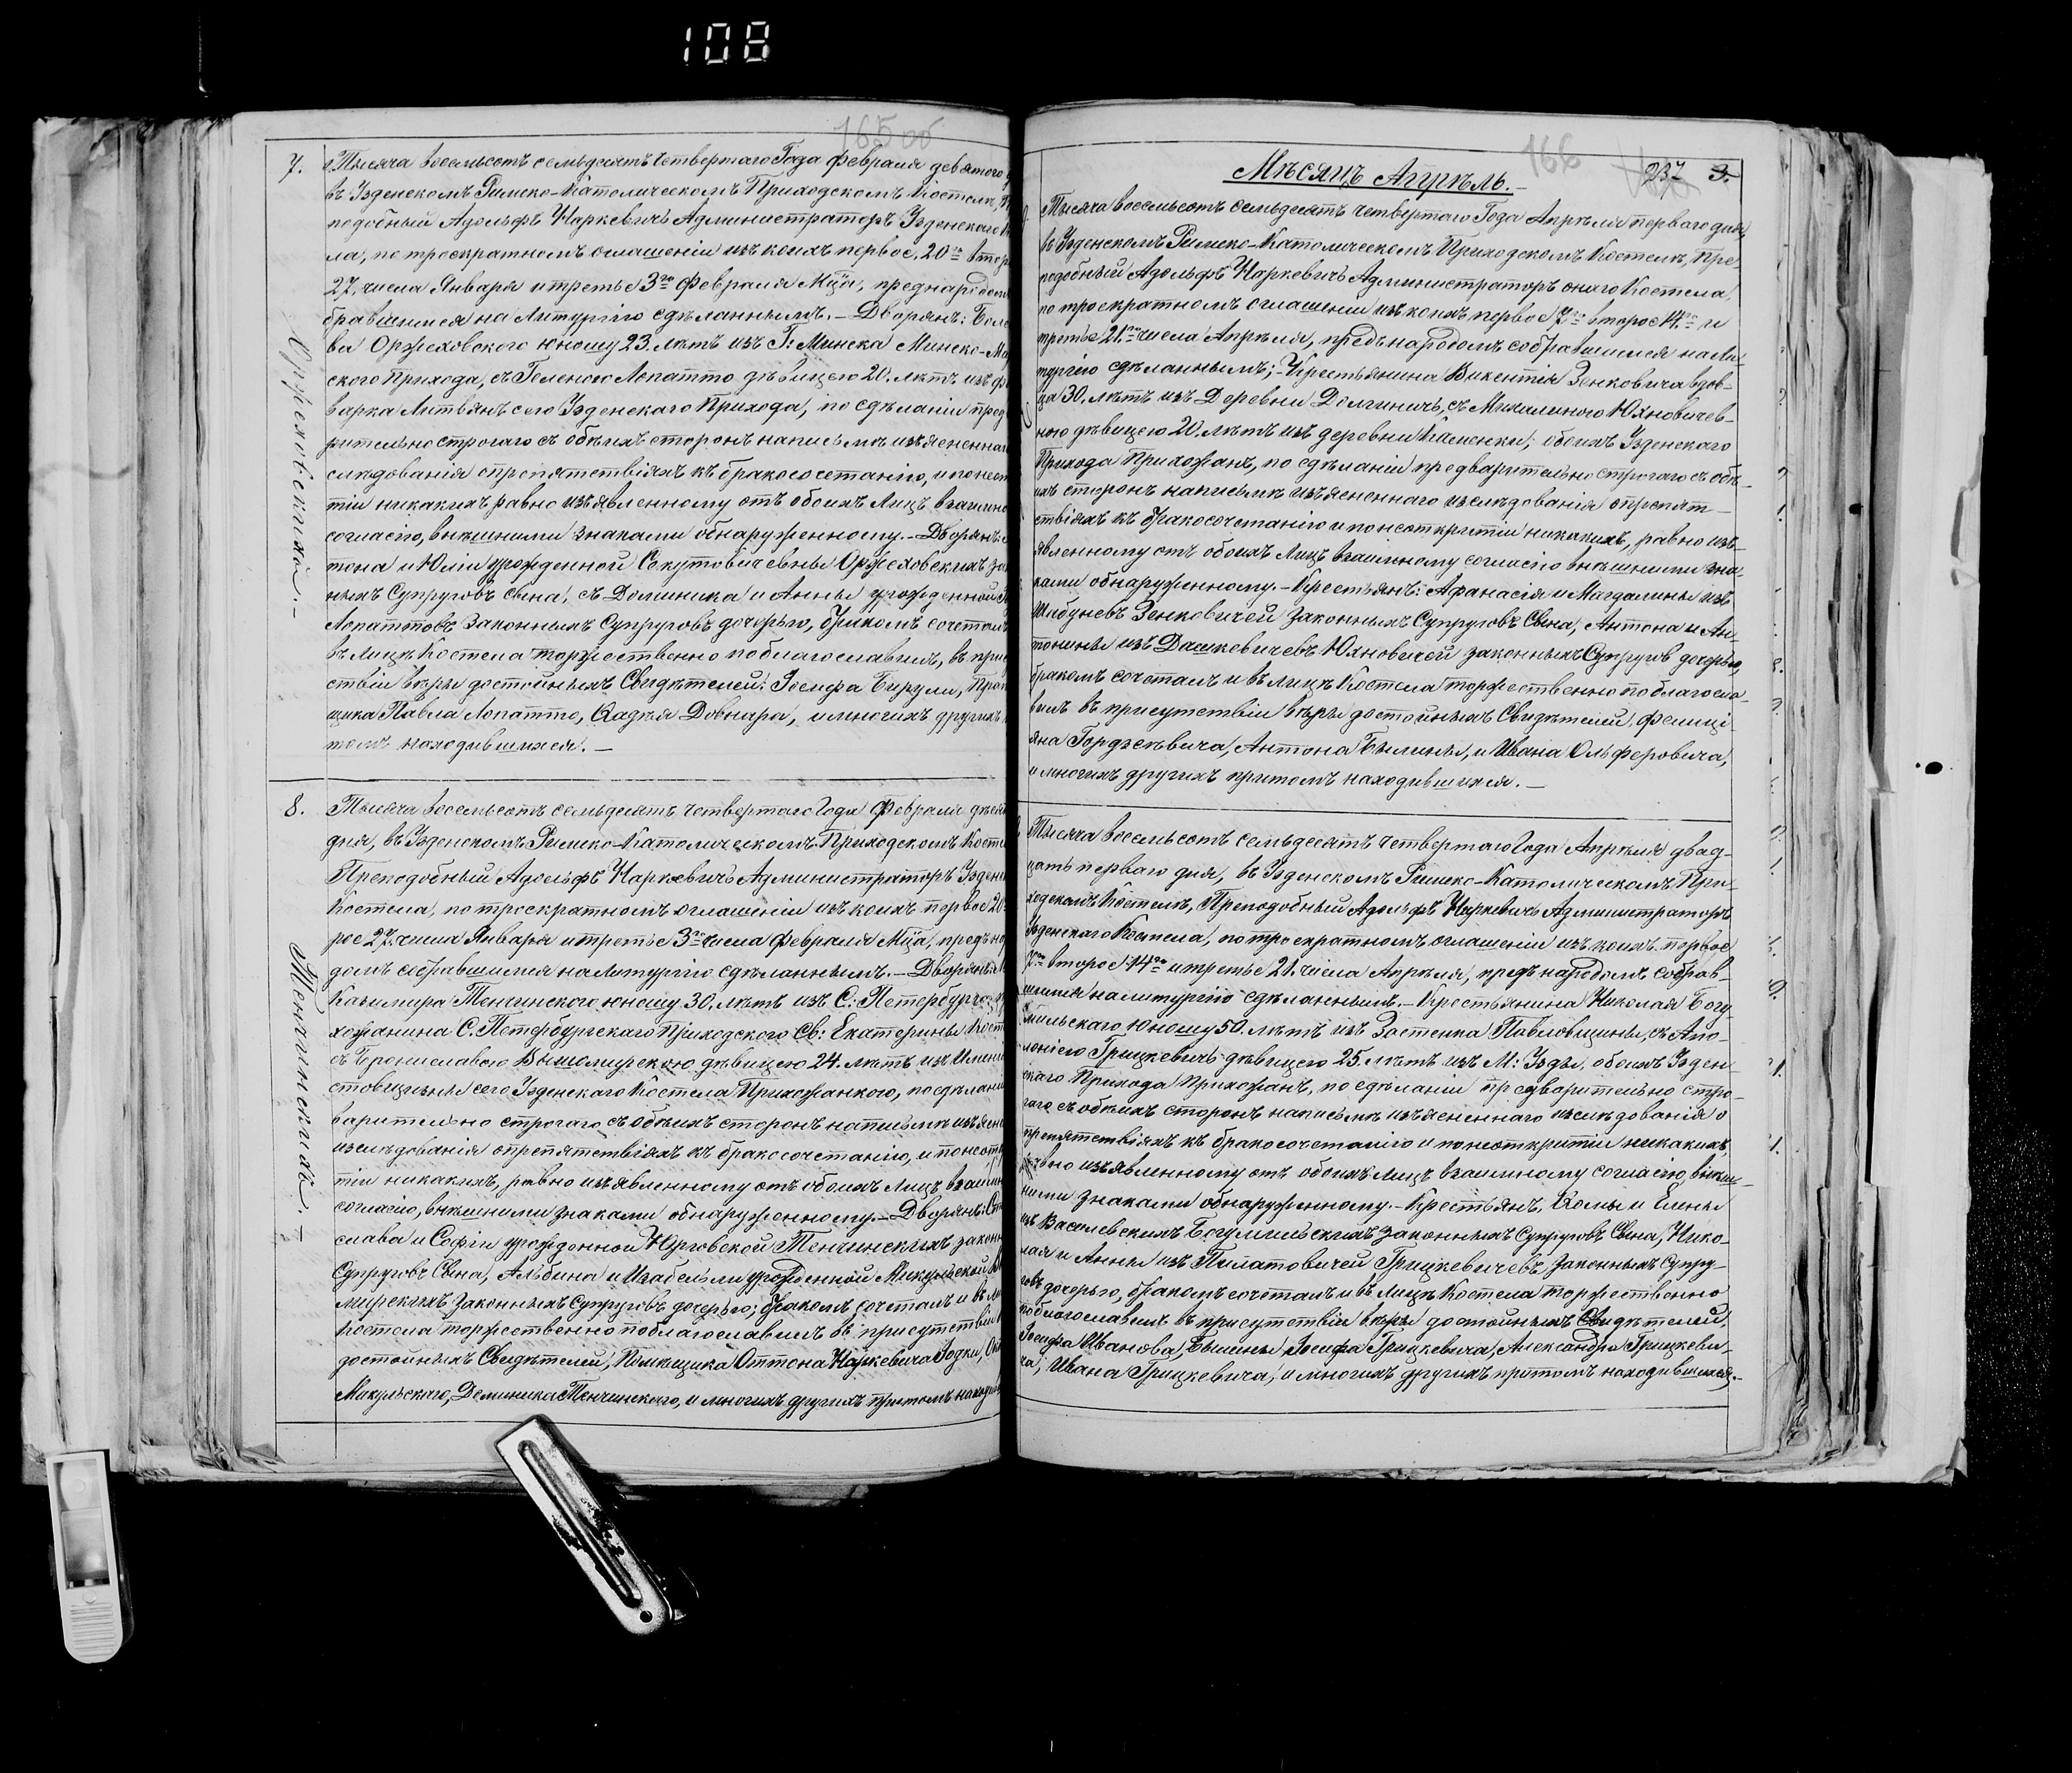 108
165 об
7.
Тысяча восемьсотъ семьдесятъ четвертаго Года Февраля девятого
въ Узденскомъ Римско-Католическомъ Приходскомъ Костелѣ,
подобный Адольфъ Наркевичъ Администраторъ Узденскаго
ла, по троекратномъ оглашеніи изъ коихъ первое, 20го втор
27, числа Января и третье 3го Февраля Мца, предънародом
бравшимся на Литургію сдѣланнымъ. – Дворянъ: Боле
ва Оржеховского юношу 23. лѣтъ изъ Г: Минска Минско-
ского Прихода, съ Геленою Лопатто дѣвицею 20. лѣтъ изъ фо
варка Литвянъ сего Узденскаго Прихода, по сдѣланіи пред
рительно строгаго съ обѣихъ сторонъ написьмѣ изъясненнаг
слѣдованія опрепятствіяхъ къ бракосочетанію, и по неот
тіи никакихъ равно изъявленному отъ обоихъ Лицъ взаимно
согласію, внѣшними знаками обнаруженному. – Дворянъ
тона и Юліи урожденной Секутовичевны Оржеховскихъ за
ныхъ Супруговъ Сына, съ Доминика и Анны урожденной
Лопаттовъ Законныхъ Супруговъ дочерью, бракомъ сочеталъ
въ лицѣ Костела торжественно поблагославилъ, въ при
ствіи вѣры достойныхъ Свидѣтелей: Іосифа Бирули,
щика Павла Лопатто, Фадѣя Довнара, и многихъ другихъ
томъ находившихся. –
Оржеховскихъ. –
8.
Тысяча восемьсотъ семьдесятъ четвертаго Года Февраля
дня, въ Узденскомъ Римско-Католическомъ Приходскомъ Косте
Преподобный Адольфъ Наркевичъ Администраторъ Узден
Костела, по троекратномъ оглашеніи изъ коихъ первое 20
рое 27. числа Января и третье 3го числа Февраля Мца, предъ на
домъ собравшимся на Литургію сдѣланнымъ. – Дворянъ
Казимира Тенчинского юношу 30. лѣтъ изъ С: Петербурга
хожанина С. Петербургскаго Приходского Св: Екатерины Кост
съ Брониславою Вышомирскою дѣвицею 24. лѣтъ изъ Имѣнія
стовщизны сего Узденскаго Костела Прихожанкою, по сдѣлані
варительно строгаго съ обѣихъ сторонъ написьмѣ изъясн
изслѣдованія опрепятствіяхъ къ бракосочетанію, и по неот
тіи никакихъ, равно изъявленному отъ обоихъ Лицъ взаим
согласію, внѣшними знаками обнаруженному. – Дворянъ: Ст
слава и Софіи урожденной Юрговской Тенчинскихъ закон
Супруговъ Сына, Альбина и Изабелли урожденной Микульской
мирскихъ Законныхъ Супруговъ дочерью, бракомъ сочеталъ и въ
Костела торжественно поблагославилъ въ присутствіи
достойныхъ Свидѣтелей, Помѣщика Оттона Наркевича Іодки,
Микульского, Доминика Тенчинского, и многихъ другихъ притомъ наход
Тенчинскихъ. –
166
237 3.
Мѣсяцъ Апрѣль. –
Тысяча восемьсотъ семьдесятъ четвертаго Года Апрѣля первого дня,
въ Узденскомъ Римско-Католическомъ Приходскомъ Костелѣ, Пре-
подобный Адольфъ Наркевичъ Администраторъ онаго Костела,
по троекратномъ оглашеніи изъ коихъ первое 7го второе 14го и
третье 21го числа Апрѣля, предънародомъ собравшимся на Ли-
тургію сдѣланнымъ; – Крестьянина Викентія Зенковича вдов-
ца 30. лѣтъ изъ Деревни Долгиничъ, съ Михалиною Юхновичев-
ною дѣвицею 20. лѣтъ изъ деревни Каменки; обоихъ Узденскаго
Прихода Прихожанъ, по сдѣланіи предварительно строгаго съ обѣ-
ихъ сторонъ написьмѣ изъясненнаго изслѣдованія опрепят-
ствіяхъ къ бракосочетанію и по неоткрытіи никакихъ, равно изъ-
явленному отъ обоихъ Лицъ взаимному согласію внѣшними зна-
ками обнаруженному. – Крестьянъ: Афанасія и Магдалины изъ
Шабуневъ Зенковичей Законныхъ Супруговъ Сына, Антона и Ан-
тонины изъ Дашкевичевъ Юхновичей законныхъ Супругов дочерью,
бракомъ сочеталъ и въ лицѣ Костела торжественно поблагосла-
вилъ въ присутствіи вѣры достойныхъ Свидѣтелей, Фелиці-
яна Гордзѣевича, Антона Былины, и Ивана Ольферовича,
и многихъ другихъ притомъ находившихся. –
Тысяча восемьсотъ семьдесятъ четвертаго Года Апрѣля двад-
цать первого дня, въ Узденскомъ Римско-Католическомъ При-
ходскомъ Костелѣ, Преподобный Адольфъ Наркевичъ Администраторъ
Узденскаго Костела, по троекратномъ оглашеніи изъ коихъ первое
7го второе 14го и третье 21. числа Апрѣля, предъ народомъ собрав-
шимся на литургію сдѣланнымъ. – Крестьянина Николая Богу-
мильскаго Юношу 50. лѣтъ изъ Застенка Павловщины, съ Апо-
лоніею Грицкевичъ дѣвицею 25. лѣтъ изъ М: Узды, обоихъ Узден-
скаго Прихода Прихожанъ, по сдѣланіи предварительно стро-
гаго съ обѣихъ сторонъ написьмѣ изъясненнаго изслѣдованія о
препятствіяхъ къ бракосочетанію и по неоткрытіи никакихъ,
равно изъявленному отъ обоихъ лицъ взаимному согласію, внѣш-
ними знаками обнаруженному. – Крестьянъ, Фомы и Елены
изъ Василевскихъ Богумильскихъ Законныхъ Супруговъ Сына, Нико-
лая и Анны изъ Пилатовичей Грицкевичевъ Законныхъ Супру-
говъ дочерью, бракомъ сочеталъ и въ лицѣ Костела торжественно
поблагославилъ въ присутствіи вѣры достойныхъ Свидѣтелей,
Іосифа Иванова, Былины, Іосифа Грицкевича, Александра Грицкеви-
ча, Ивана Грицкевича, и многихъ другихъ притомъ находившихся. –